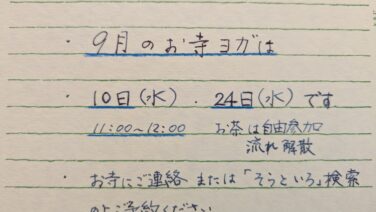 ・9月のお寺ヨガは
10日(水)．24日(水)です
11:00～12:00 お茶は自由参加
流れ解散
・お寺にご連絡または「そうといろ」検索
のよご予約ください